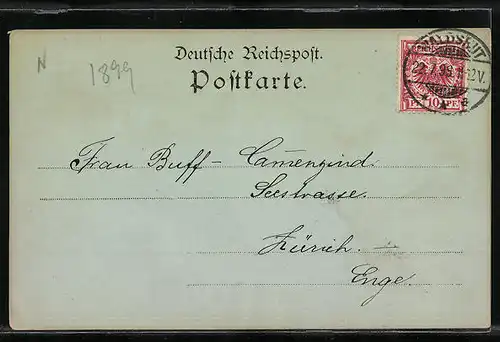 N
1899
Deutsche Reichspost.
Postkarte.
WALDSHUT
Frau Buff - Camenzind.
Seestrasse.
Zürich. -
Enge.